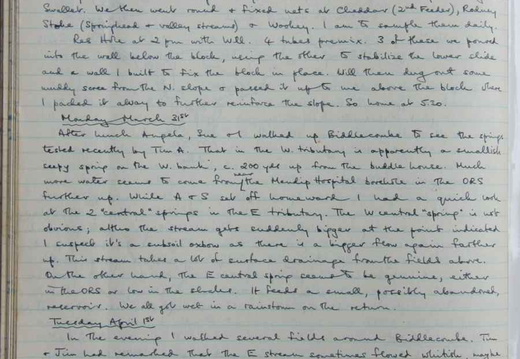 Swallet. We then went round & fixed nets at Cheddar (2nd Feeder), Rodney
Stoke (Springhead & valley streams) & Wookey. I am to sample them daily.
Res Hole at 2 pm with Will. 4 tubes premix. 3 of these we poured
into the well below the block, using the other to stabilize the lower slide
and a wall I built to fix the block in place. Will then dug out some
muddy scree from the N. slope & passed it up to me above the block where
I packed it away to further reinforce the slope. So home at 5.20.
Monday March 31st
After lunch Angela, Sue & I walked up Biddlecombe to see the springs
tested recently by Tim A. That in the W. tributary is apparently a smallish
seepy spring on the W. bank, c. 200 yds up from the buddle house. Much
more water seems to come from near the Mendip Hospital borehole in the ORS
further up. While A & S set off homeward I had a quick look
at the 2 "central" springs in the E tributary. The W central "spring" is not
obvious, altho the stream gets suddenly bigger at the point indicated
I suspect it's a subsoil oxbow as there is a bigger flow again farther
up. This stream takes a lot of surface drainage from the fields above.
On the other hand, the E central spring seems to be genuine, either
in the ORS or low in the shales. It feeds a small, possibly abandoned,
reservoir. We all got wet in a rainstorm on the return.
Tuesday April 1st
In the evening I walked several fields around Biddlecombe. Tim
& Jim had remarked that the E stream sometimes flowed whitish, maybe